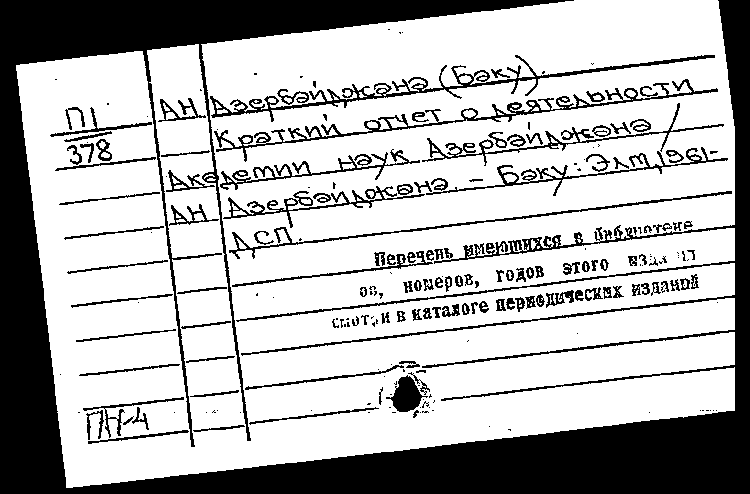 П1
378
АН Азербайджана (Баку).
Краткий отчет о деятельности
Академии наук Азербайджана /
АН Азербайджана. - Баку: Элм, 1961-
ДСП.
Перечень имеющихся в библиотеке
ов, номеров, годов этого издания
смотри в каталоге периодических изданий